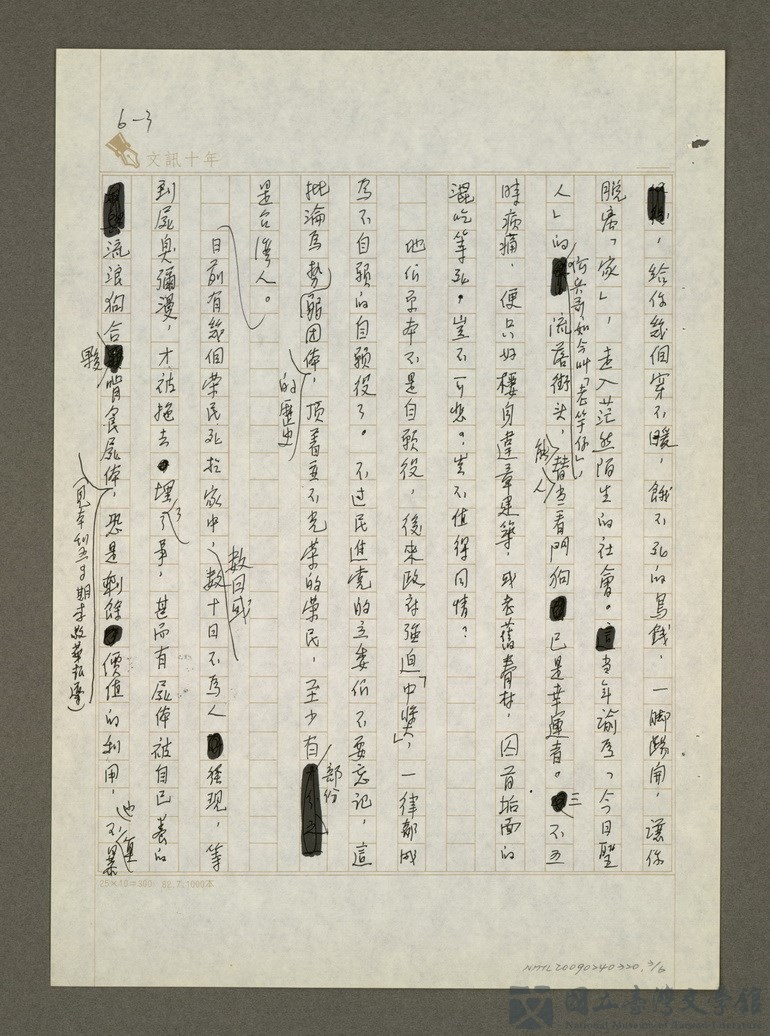 6-3
文訊十年
,給你幾個穿不暖,餓不死的鳥錢,一腳踢開,讓你
脫離「家」,走入茫然陌生的社會。當年諭為「今日聖
人」的流落街頭,能替人當看門狗已是幸運者。三不五
臨共哥如今叫「老竿仔」
時病痛,便只好樓身違章建築,或老舊眷村,囚首垢面的
混吃等死。豈不可悲?豈不值得同情?
他們原本不是自願役,後來政府強迫「中獎」,一律都成
為不自願的自願役了。不過民進党的立委們不要忘記,這
批淪為勢弱团体,頂着並不光荣的荣民,至少有部份
的歷史
是台湾人。
日前有幾個荣民死於家中,數日或數十日不為人發現,等
到屍臭彌漫,才被拖去埋了了事,甚而有屍体被自己養的
流浪狗合夥啃食屍体,恐是剩餘價值的利用,也不復
(見本刊五月期李啟華報導)
25×12=300 82.7.1000本
NMTL20090240320, 3/5
國立臺灣文學館
National Museum of Taiwan Literature